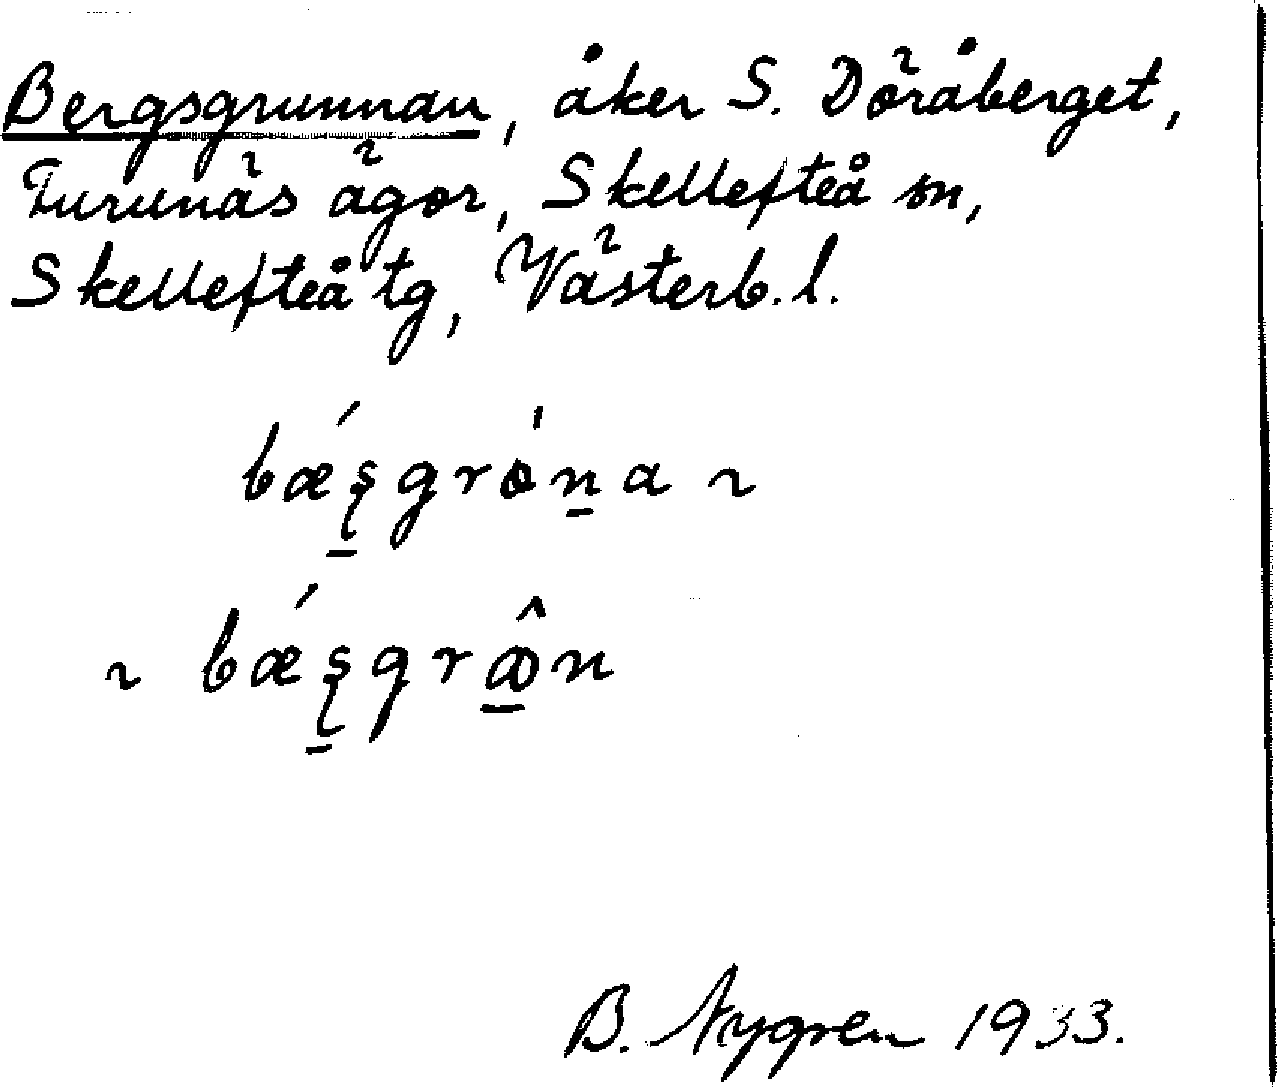 Bergsgrunnan, åker S. Döråberget,
Furunäs ägor, Skellefteå sn,
Skellefteå tg, Västerb. l.
bǽʂgrònạ ~
~ bǽʂgrôn
B. Nygren 1933.